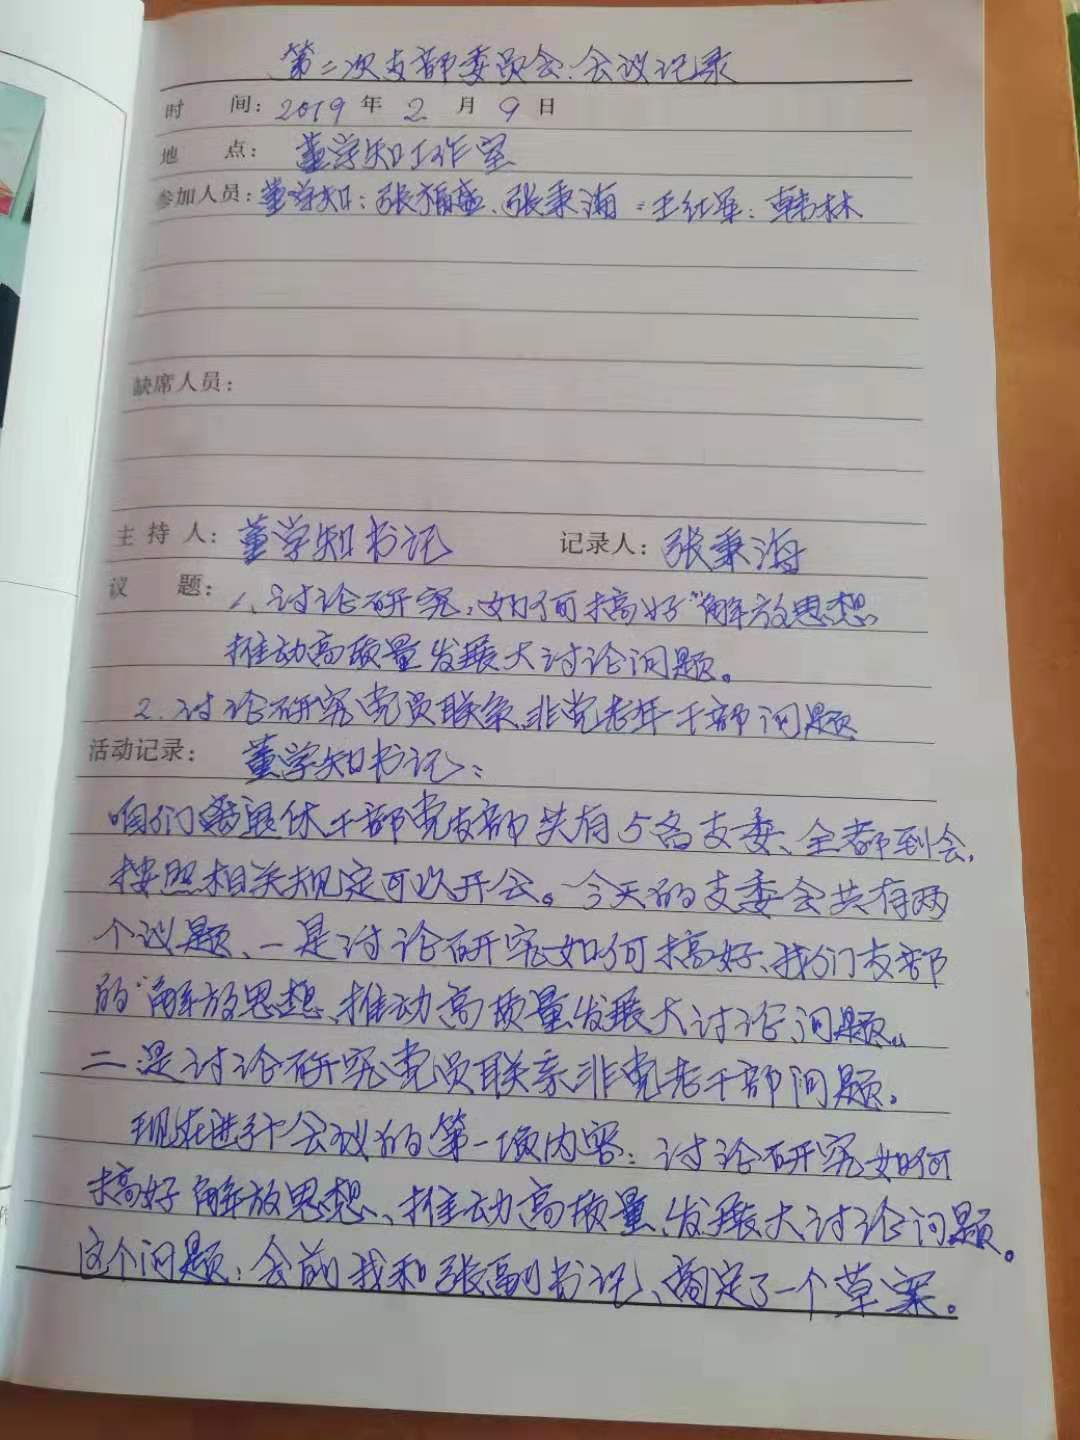 第二次支部委员会会议记录
时 间：2019年2月9日
地 点：董学知工作室
参加人员：董学知：张福盛、张秉海：王红军：韩林
缺席人员：
主持人：董学知书记 记录人：张秉海
议 题：1、讨论研究，如何搞好“解放思想
推动高质量发展大讨论问题。
2.讨论研究党员联系非党老年干部问题
活动记录： 董学知书记：
咱们离退休干部党支部共有5名支委、全都到会，
按照相关规定可以开会。今天的支委会共有两
个议题、一是讨论研究如何搞好、我们支部
的“解放思想、推动高质量发展大讨论问题。
二是讨论研究党员联系非党老干部问题。
现在进行会议的第一项内容：讨论研究如何
搞好解放思想、推动高质量发展大讨论问题。
这个问题：会前我和张副书记、商定了一个草案。